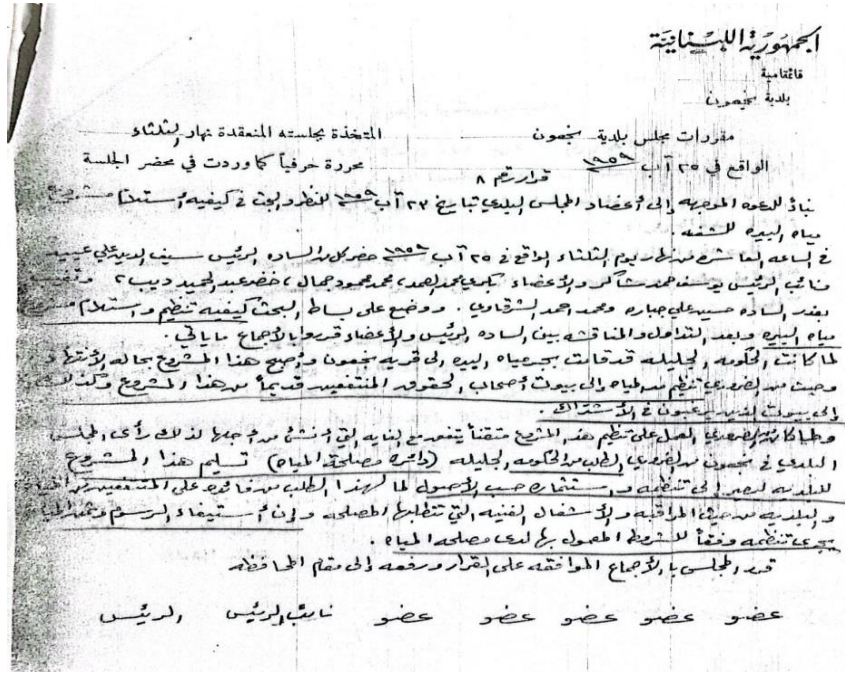 الجمهورية اللبنانية
قائمقامية
بلدية بخعون
مقررات مجلس بلدية بخعون المتخذة بجلسته المنعقدة نهار الثلثاء
الواقع في ٢٥ آب ١٩٥٩ محررة حرفياً كما وردت في محضر الجلسة
قرار رقم ٨
بناءً للدعوه الموجهه إلى أعضاء المجلس البلدي بتاريخ ٢٣ آب ١٩٥٩ للنظر والبحث في كيفيه إستلام مشروع
مياه البيره للشفه
في الساعه العاشره من نهار يوم الثلثاء الواقع في ٢٥ آب ١٩٥٩ حضر كل من الساده الرئيس سيف الدين علي
ونائب الرئيس يوسف حمد شاكر والأعضاء محمد محمود جمال، خضر عبد الحميد ديب، وتغيب
بعذر الساده حسين علي جباره ومحمد احمد الشرقاوي. ووضع على بساط البحث كيفيه تنظيم وإستلام مشروع
مياه البيره وبعد التداول والمناقشه بين الساده الرئيس والأعضاء قرروا بالأجماع ما يأتي.
لما كانت الحكومه الجليله قد قامت بجر مياه البيره الى قرية بخعون وأصبح هذا المشروع بحاله الأنتهاء
وحيث من الضروري تنظيم مد المياه إلى بيوت أصحاب الحقوق المنتفعين قديماً من هذا المشروع وكذلك
إلى بيوت الذين يرغبون في الأشتراك.
ولما كان من الضروري العمل على تنظيم هذا المشروع متقناً يتفق مع الغايه التي أنشئ من أجلها لذلك رأى المجلس
البلدي في بخعون من الضروري الطلب من الحكومه الجليله (دائرة مصلحة المياه) تسليم هذا المشروع
للبلديه ليصار إلى تنظيمه وإستثماره حسب الأصول لما لهذا الطلب من فائده على المنتفعين من
والبلديه من حيث المراقبه والأشغال الفنيه التي تتطلبها المصلحه وإن إستيفاء الرسوم
يجري تنظيمه وفقاً للشروط المعمول بها لدى مصلحة المياه.
قرر المجلس بالأجماع الموافقه على القرار ورفعه إلى مقام المحافظه
عضو عضو عضو عضو عضو نائب الرئيس الرئيس